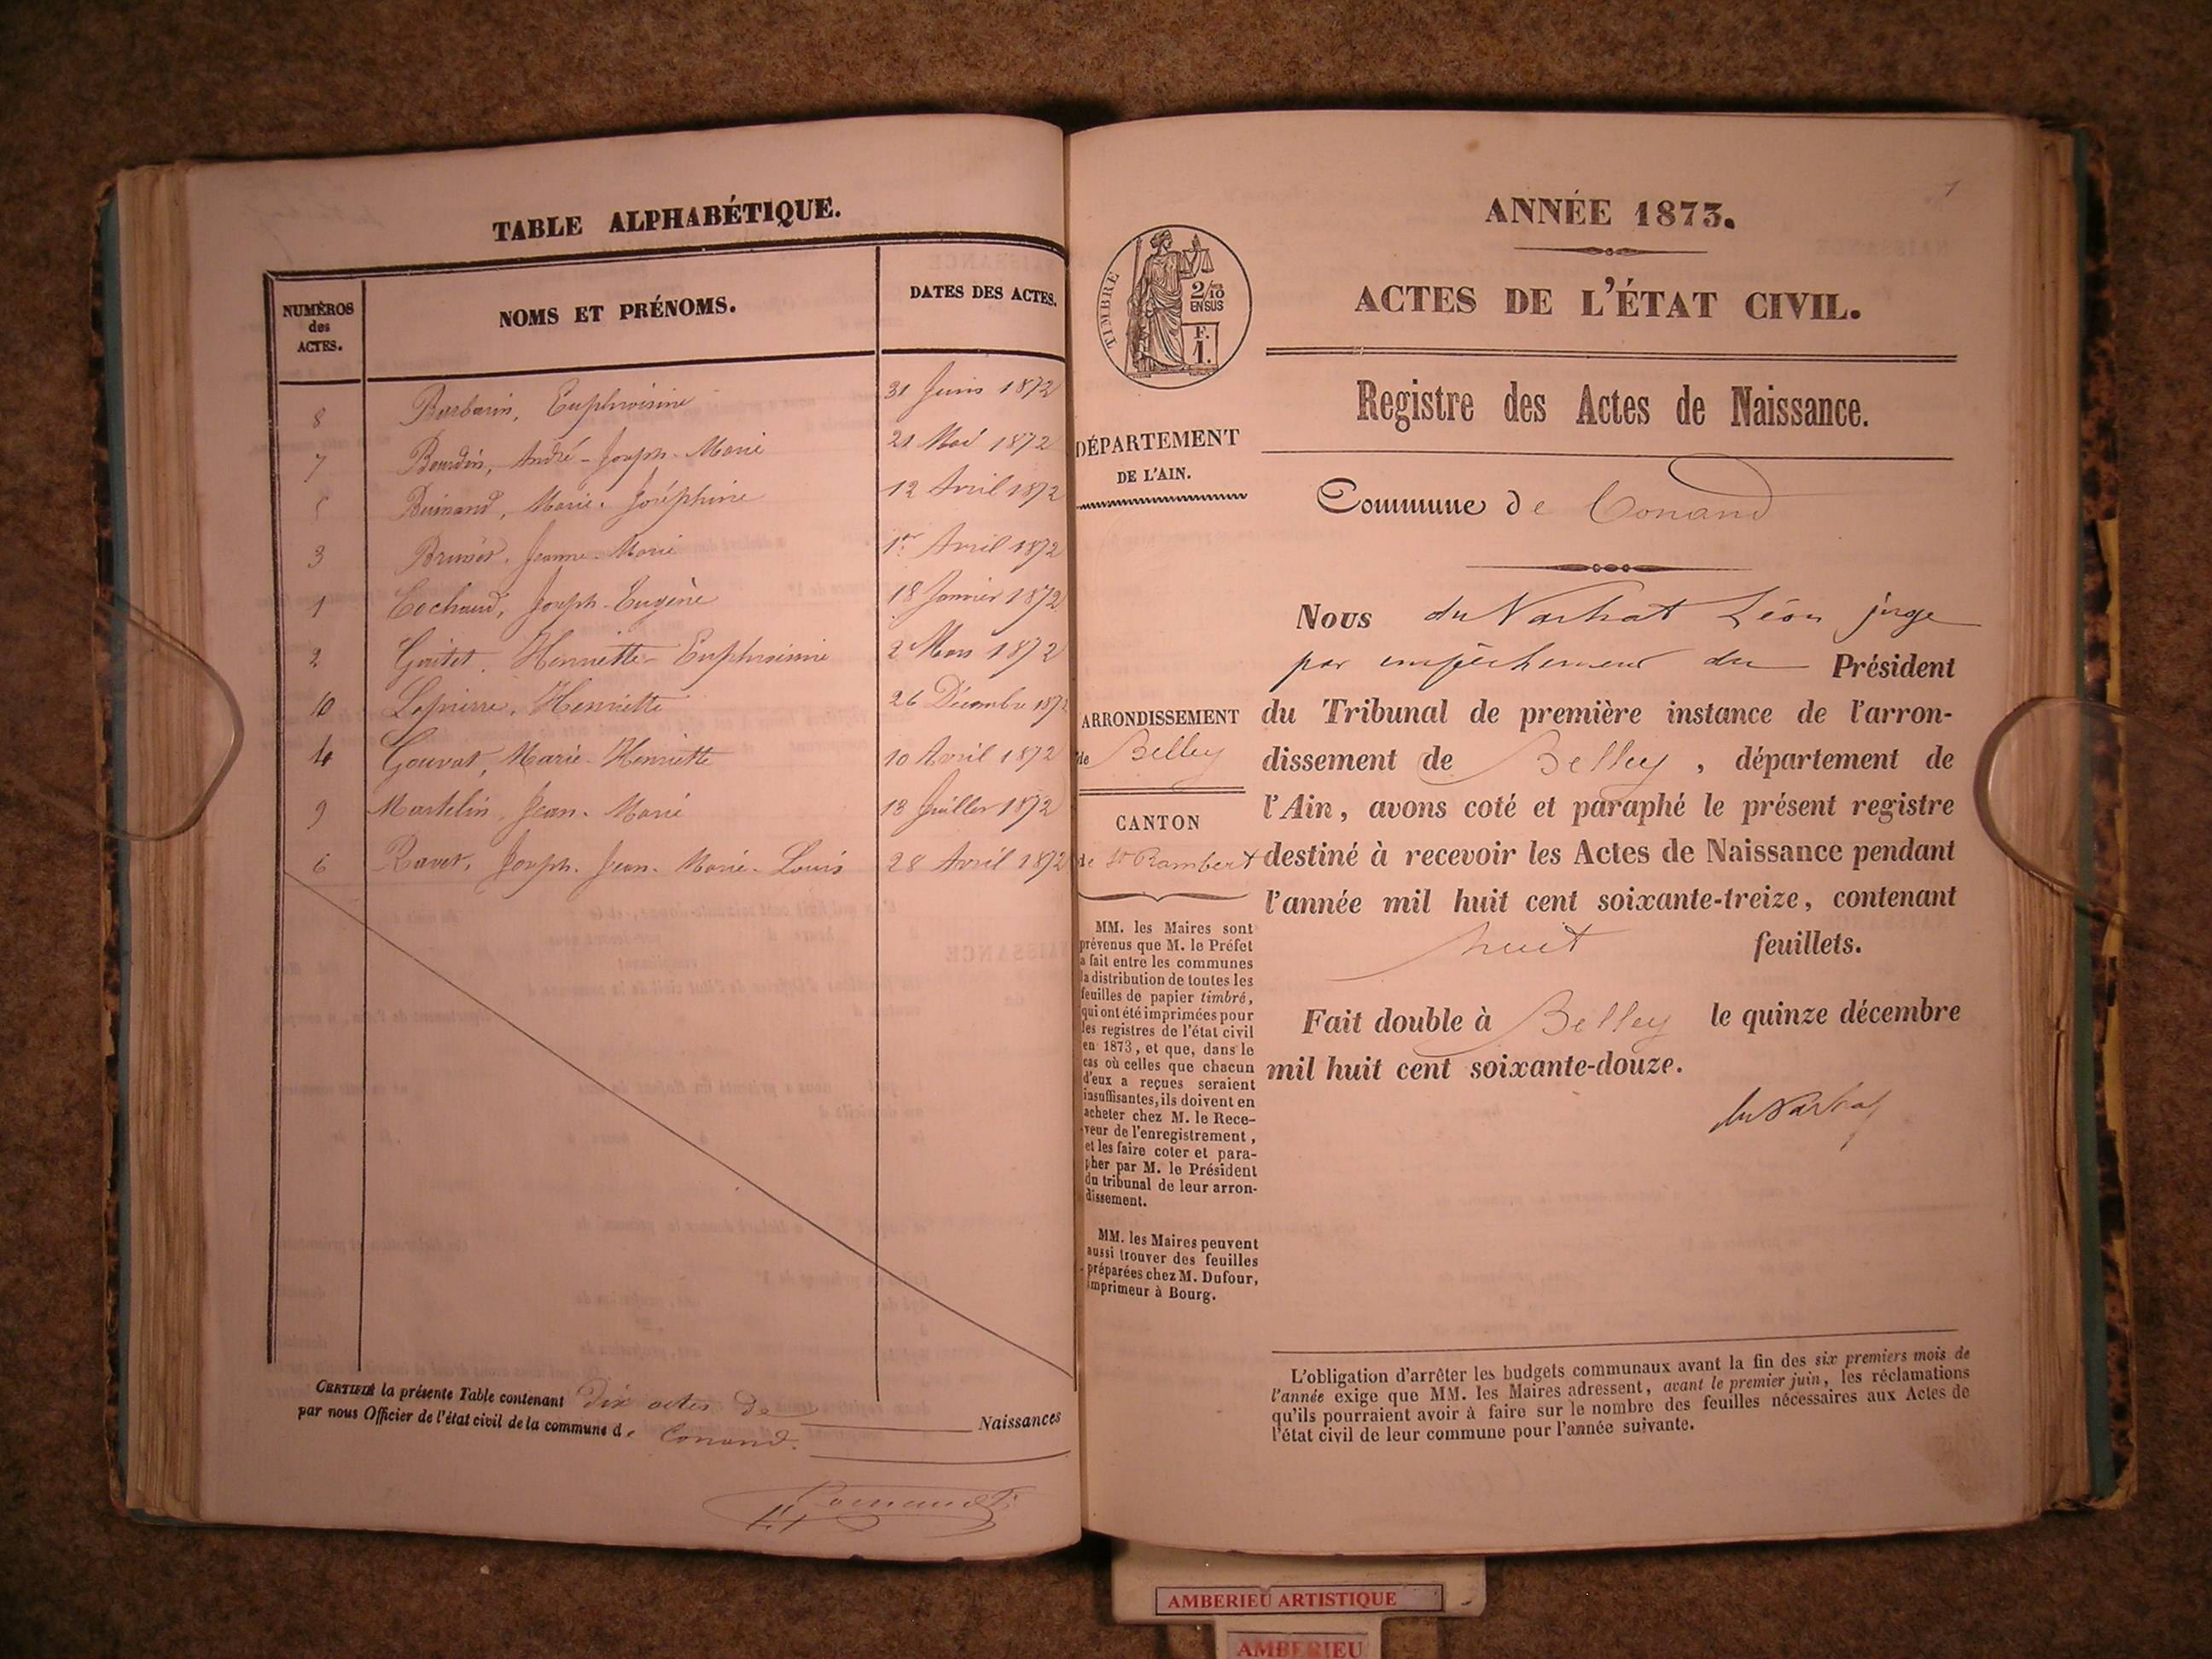 TABLE ALPHABÉTIQUE.
NUMÉROS
des
ACTES.
NOMS ET PRÉNOMS.
DATES DES ACTES.
8 Barbarin, Euphroisine 31 Juin 1872
7 Bourdin, André-Joseph-Marie 21 Mai 1872
5 Marie-Joséphine 12 Avril 1872
3 Brunet, Jeanne-Marie 1er Avril 1872
1 Cochaud, Joseph-Eugène 18 Janvier 1872
2 Goitet, Henriette-Euphroisine 2 Mars 1872
10 Lapierre, Henriette 26 Décembre 1872
4 Gouvat, Marie-Henriette 10 Avril 1872
9 Martelin, Jean-Marie 13 Juillet 1872
6 Ravet, Joseph-Jean-Marie-Louis 28 Avril 1872
CERTIFIÉ la présente Table contenant dix actes de Naissances
par nous Officier de l'état civil de la commune de Conand.
1
TIMBRE
2/10
EN SUS
F.
1.
DÉPARTEMENT
DE L'AIN.
ARRONDISSEMENT
de Belley
CANTON
de St Rambert
MM. les Maires sont
prévenus que M. le Préfet
a fait entre les communes
la distribution de toutes les
feuilles de papier timbré,
qui ont été imprimées pour
les registres de l'état civil
en 1873, et que, dans le
cas où celles que chacun
d'eux a reçues seraient
insuffisantes, ils doivent en
acheter chez M. le Rece-
veur de l'enregistrement,
et les faire coter et para-
pher par M. le Président
du tribunal de leur arron-
dissement.
MM. les Maires peuvent
aussi trouver des feuilles
préparées chez M. Dufour,
imprimeur à Bourg.
ANNÉE 1873.
ACTES DE L'ÉTAT CIVIL.
Registre des Actes de Naissance.
Commune de Conand
Nous du Varhat Léon juge
par empêchement du Président
du Tribunal de première instance de l'arron-
dissement de Belley, département de
l'Ain, avons coté et paraphé le présent registre
destiné à recevoir les Actes de Naissance pendant
l'année mil huit cent soixante-treize, contenant
huit feuillets.
Fait double à Belley le quinze décembre
mil huit cent soixante-douze.
du Varhat
L'obligation d'arrêter les budgets communaux avant la fin des six premiers mois de
l'année exige que MM. les Maires adressent, avant le premier juin, les réclamations
qu'ils pourraient avoir à faire sur le nombre des feuilles nécessaires aux Actes de
l'état civil de leur commune pour l'année suivante.
AMBERIEU ARTISTIQUE
AMBERIEU